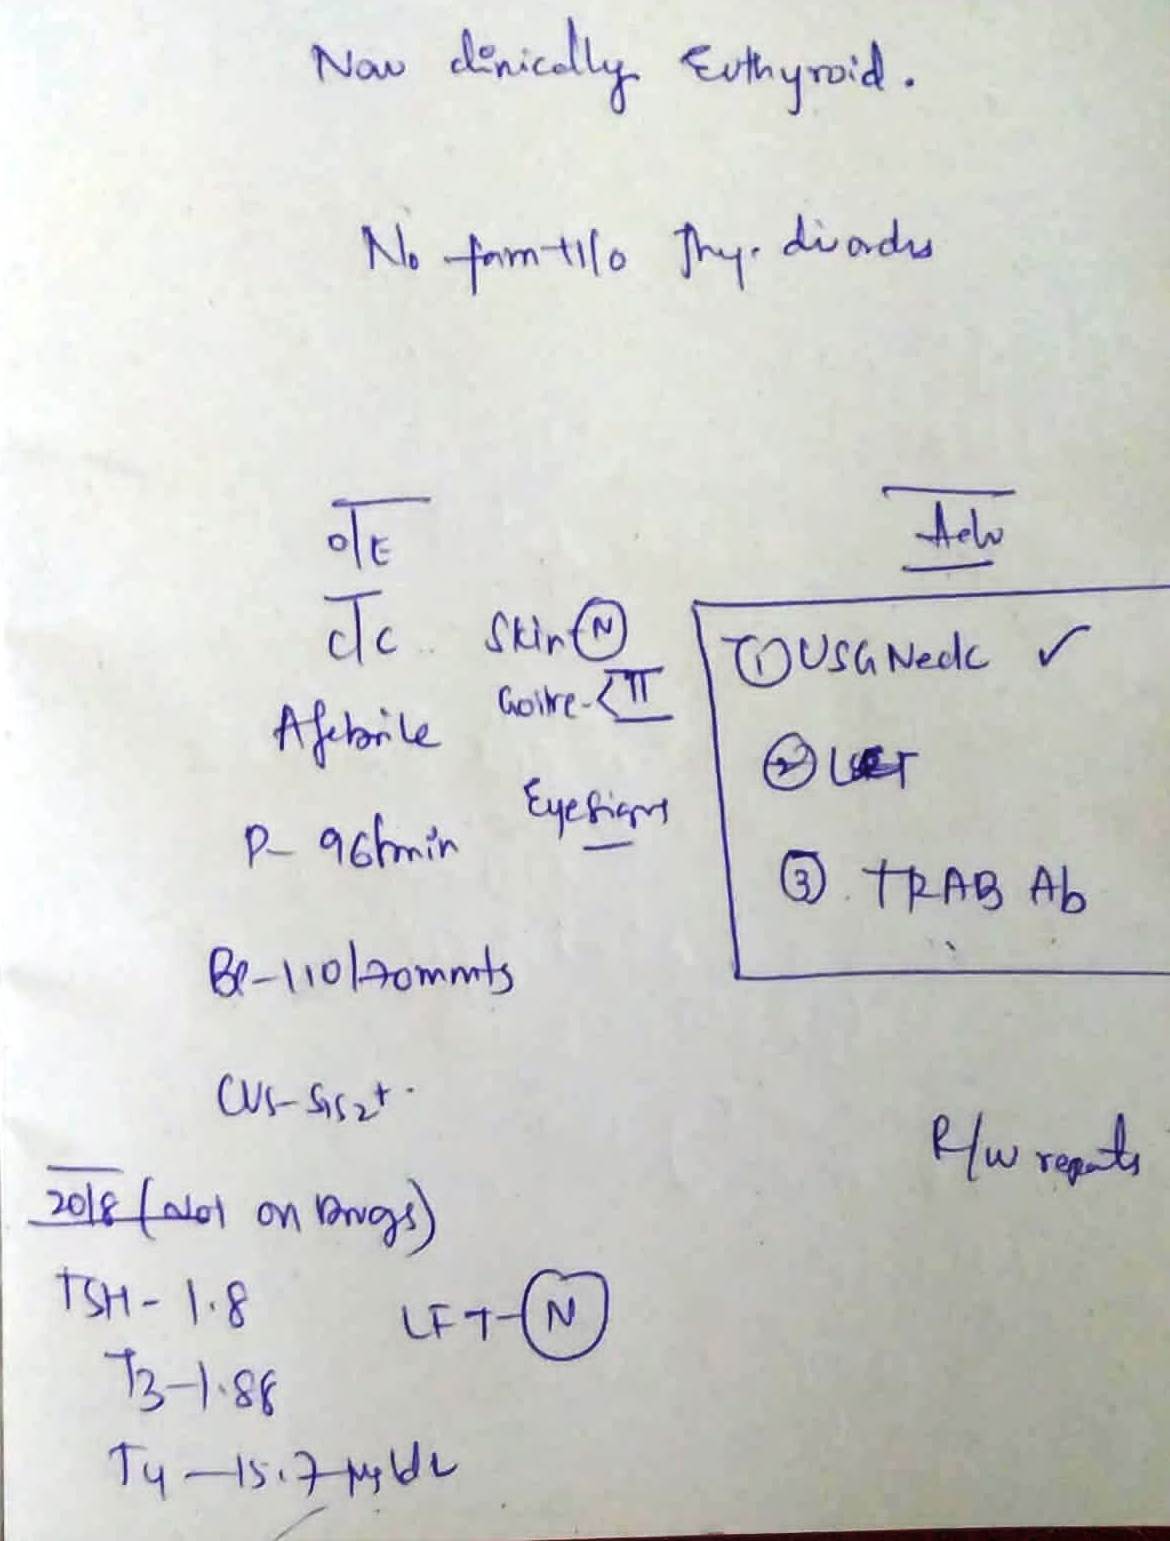 Now clinically Euthyroid.
No fam H/o Thy. disorders
O/E
C/C
Skin (N)
Goitre - < II
Afebrile
Eye signs
P- 96/min
BP-110/70mmHg
CVS- S1S2+.
2018 (Not on Drugs)
TSH - 1.8
LFT- (N)
T3-1.88
T4 -15.7 µg/dL
Adv
① USG Neck ✓
②
③. TRAB Ab
R/w reports